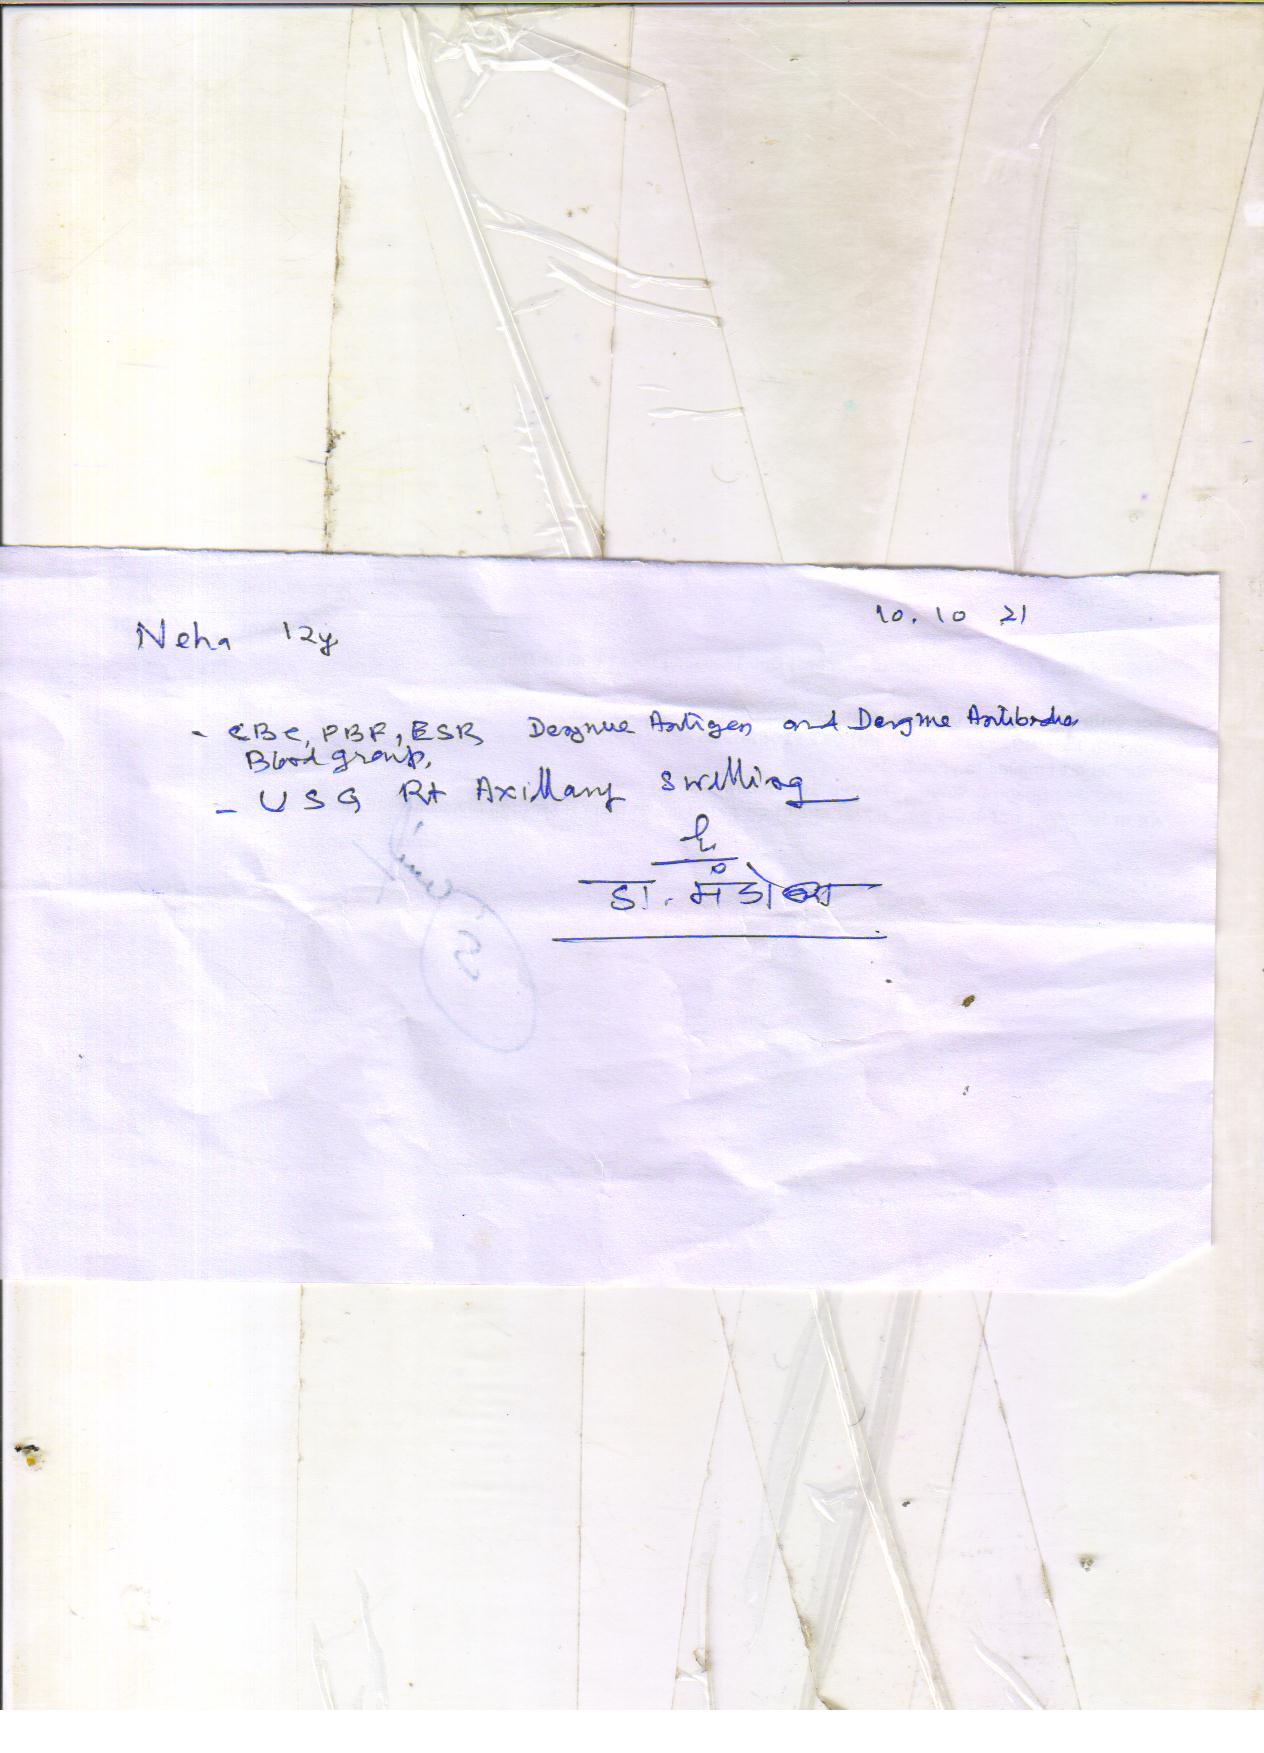 Neha 12y
10. 10 21
- CBC, PBF, ESR Dengue Antigen and Dengue Antibodies
Blood group,
- USG Rt Axillary swelling
डा.
5